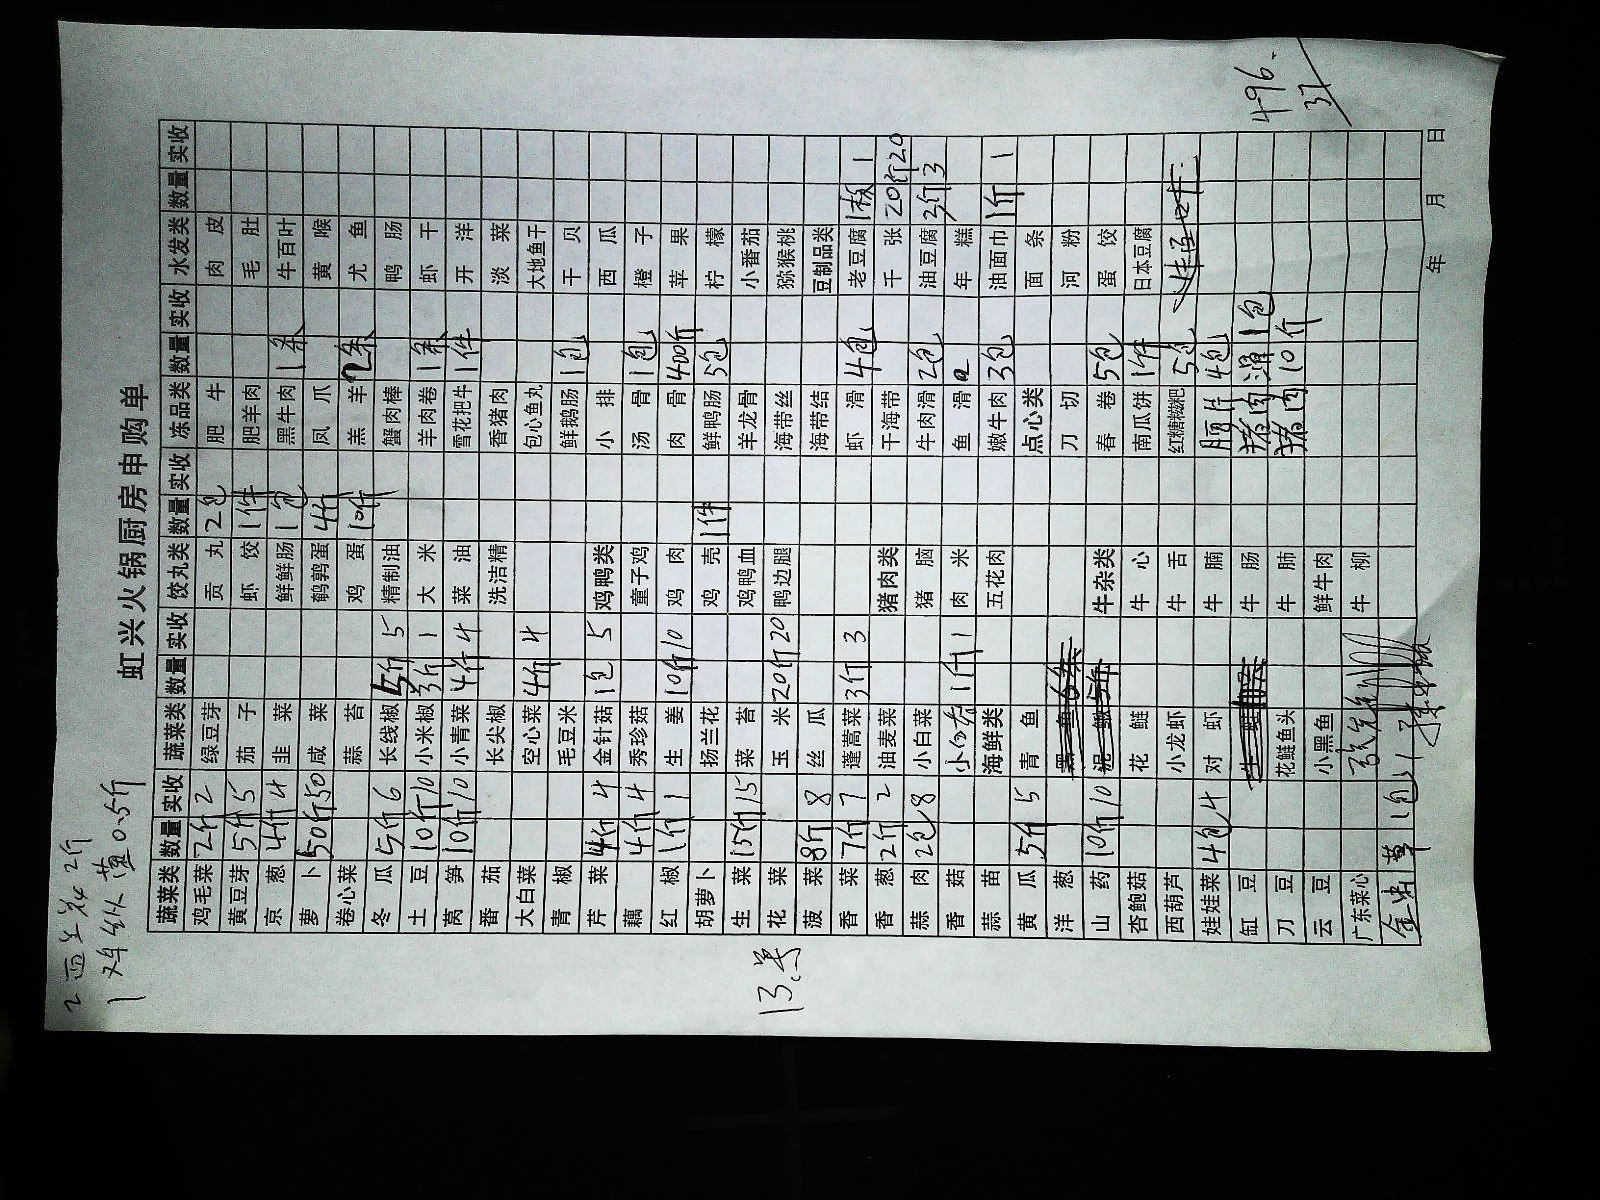 2 西兰花 2斤
1 鸡纵菌 0.5斤
虹兴火锅厨房申购单
496.
37
蔬菜类 数量 实收 蔬菜类 数量 实收 饺丸类 数量 实收 冻品类 数量 实收 水发类 数量 实收
鸡毛菜 2斤 2 绿豆芽 贡丸 2包 肥牛 肉皮
黄豆芽 5斤 5 茄子 虾饺 1件 肥羊肉 毛肚
京葱 4斤 4 韭菜 鲜鲜肠 1包 黑牛肉 1条 牛百叶
萝卜 50斤 50 咸菜 鹌鹑蛋 4斤 凤爪 黄喉
卷心菜 蒜苔 鸡蛋 10斤 羔羊 2条 尤鱼
冬瓜 5斤 6 长线椒 5斤 5 精制油 蟹肉棒 鸭肠
土豆 10斤 10 小米椒 3斤 1 大米 羊肉卷 1条 虾干
莴笋 10斤 10 小青菜 4斤 4 菜油 雪花把牛 1件 开洋
番茄 长尖椒 洗洁精 香猪肉 淡菜
大白菜 空心菜 4斤 4 包心鱼丸 大地鱼干
青椒 毛豆米 鲜鹅肠 1包 干贝
芹菜 4斤 4 金针菇 1包 5 鸡鸭类 小排 西瓜
藕 4斤 4 秀珍菇 童子鸡 汤骨 1包 橙子
红椒 1斤 1 生姜 10斤 10 鸡肉 肉骨 400斤 苹果
胡萝卜 扬兰花 鸡壳 1件 鲜鸭肠 5包 柠檬
生菜 15斤 15 菜苔 鸡鸭血 羊龙骨 小番茄
花菜 玉米 20斤 20 鸭边腿 海带丝 猕猴桃
菠菜 8斤 8 丝瓜 海带结 豆制品类
香菜 7斤 7 蓬蒿菜 3斤 3 虾滑 4包 老豆腐 1板 1
香葱 2斤 2 油麦菜 猪肉类 干海带 千张 20斤 20
蒜肉 2包 8 小白菜 猪脑 牛肉滑 2包 油豆腐 3斤 3
香菇 1斤 1 肉米 鱼滑 年糕
蒜苗 海鲜类 五花肉 嫩牛肉 3包 油面巾 1斤 1
黄瓜 5斤 5 青鱼 点心类 面条
洋葱 黑鱼 刀切 河粉
山药 10斤 10 泥鳅 5斤 牛杂类 春卷 5包 蛋饺
杏鲍菇 花鲢 牛心 南瓜饼 1件 日本豆腐
西葫芦 小龙虾 牛舌 红糖糍粑 5包
娃娃菜 4包 4 对虾 牛腩 4包
缸豆 牛蛙 牛肠 猪肉滑 1包
刀豆 花鲢鱼头 牛肺 猪肉 10斤
云豆 小黑鱼 鲜牛肉
广东菜心 牛柳
1包
13号
年 月 日